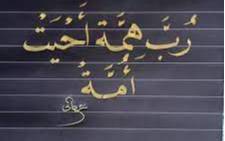 رُبَّ هِمَّة أَحْيَتْ
أُمَّةً